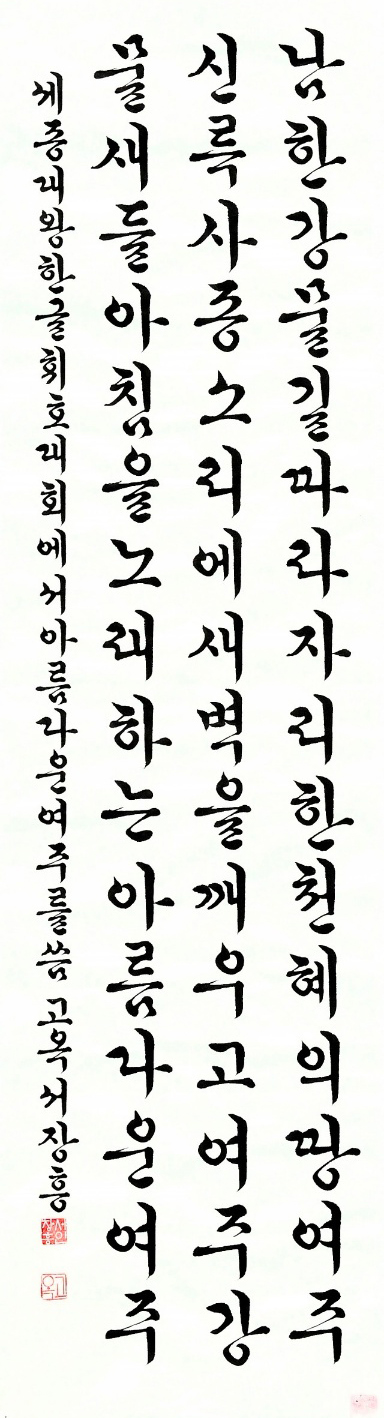 남한강물길따라자리한천혜의땅여주
신륵사종소리에새벽을깨우고여주강
물새들아침을노래하는아름다운여주
세종대왕한글휘호대회에서아름다운여주를씀 고옥서장흥
고옥